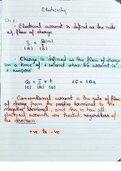 Electricity
Electrical current is defined as the rate
of flow of charge
I = Q (C)
t (s)
(A)
Charge is defined as the flow of charge
in a time of 1 second when the current is
Q = I × t
1C = 1As
(C) (A) (s)
Conventional current is the rate of flow
of charge from the positive terminal to the
negative terminal, and this is how all
electrical currents are treated, regardless of
the direction
+ve to -ve